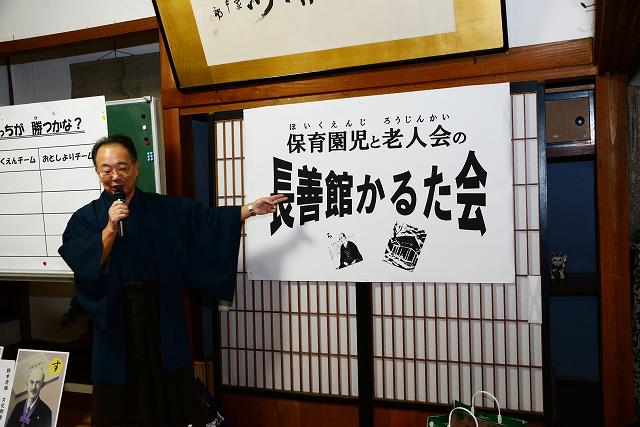 っちが 勝つかな?
くえんチーム おとしよりチーム
ほいくえんじ ろうじんかい
保育園児と老人会の
長善館かるた会
す
鈴木虎雄